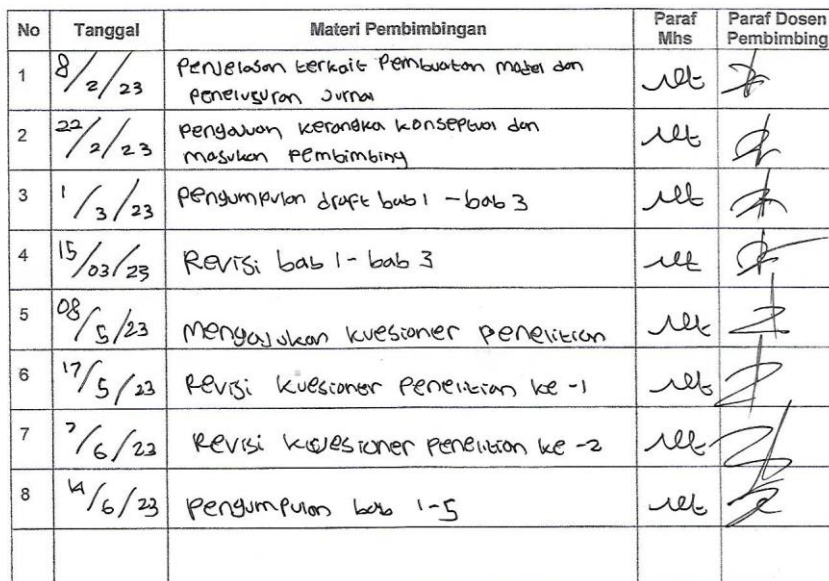 No Tanggal Materi Pembimbingan Paraf Mhs Paraf Dosen Pembimbing
1 8/2/23 Penjelasan terkait Pembuatan model dan
penelusuran Jurnal
2 22/2/23 pengajuan kerangka konseptual dan
masukan pembimbing
3 1/3/23 pengumpulan draft bab 1 - bab 3
4 15/03/23 Revisi bab 1 - bab 3
5 08/5/23 mengajukan kuesioner penelitian
6 17/5/23 Revisi kuesioner penelitian ke -1
7 7/6/23 Revisi kuesioner penelitian ke -2
8 14/6/23 pengumpulan bab 1-5